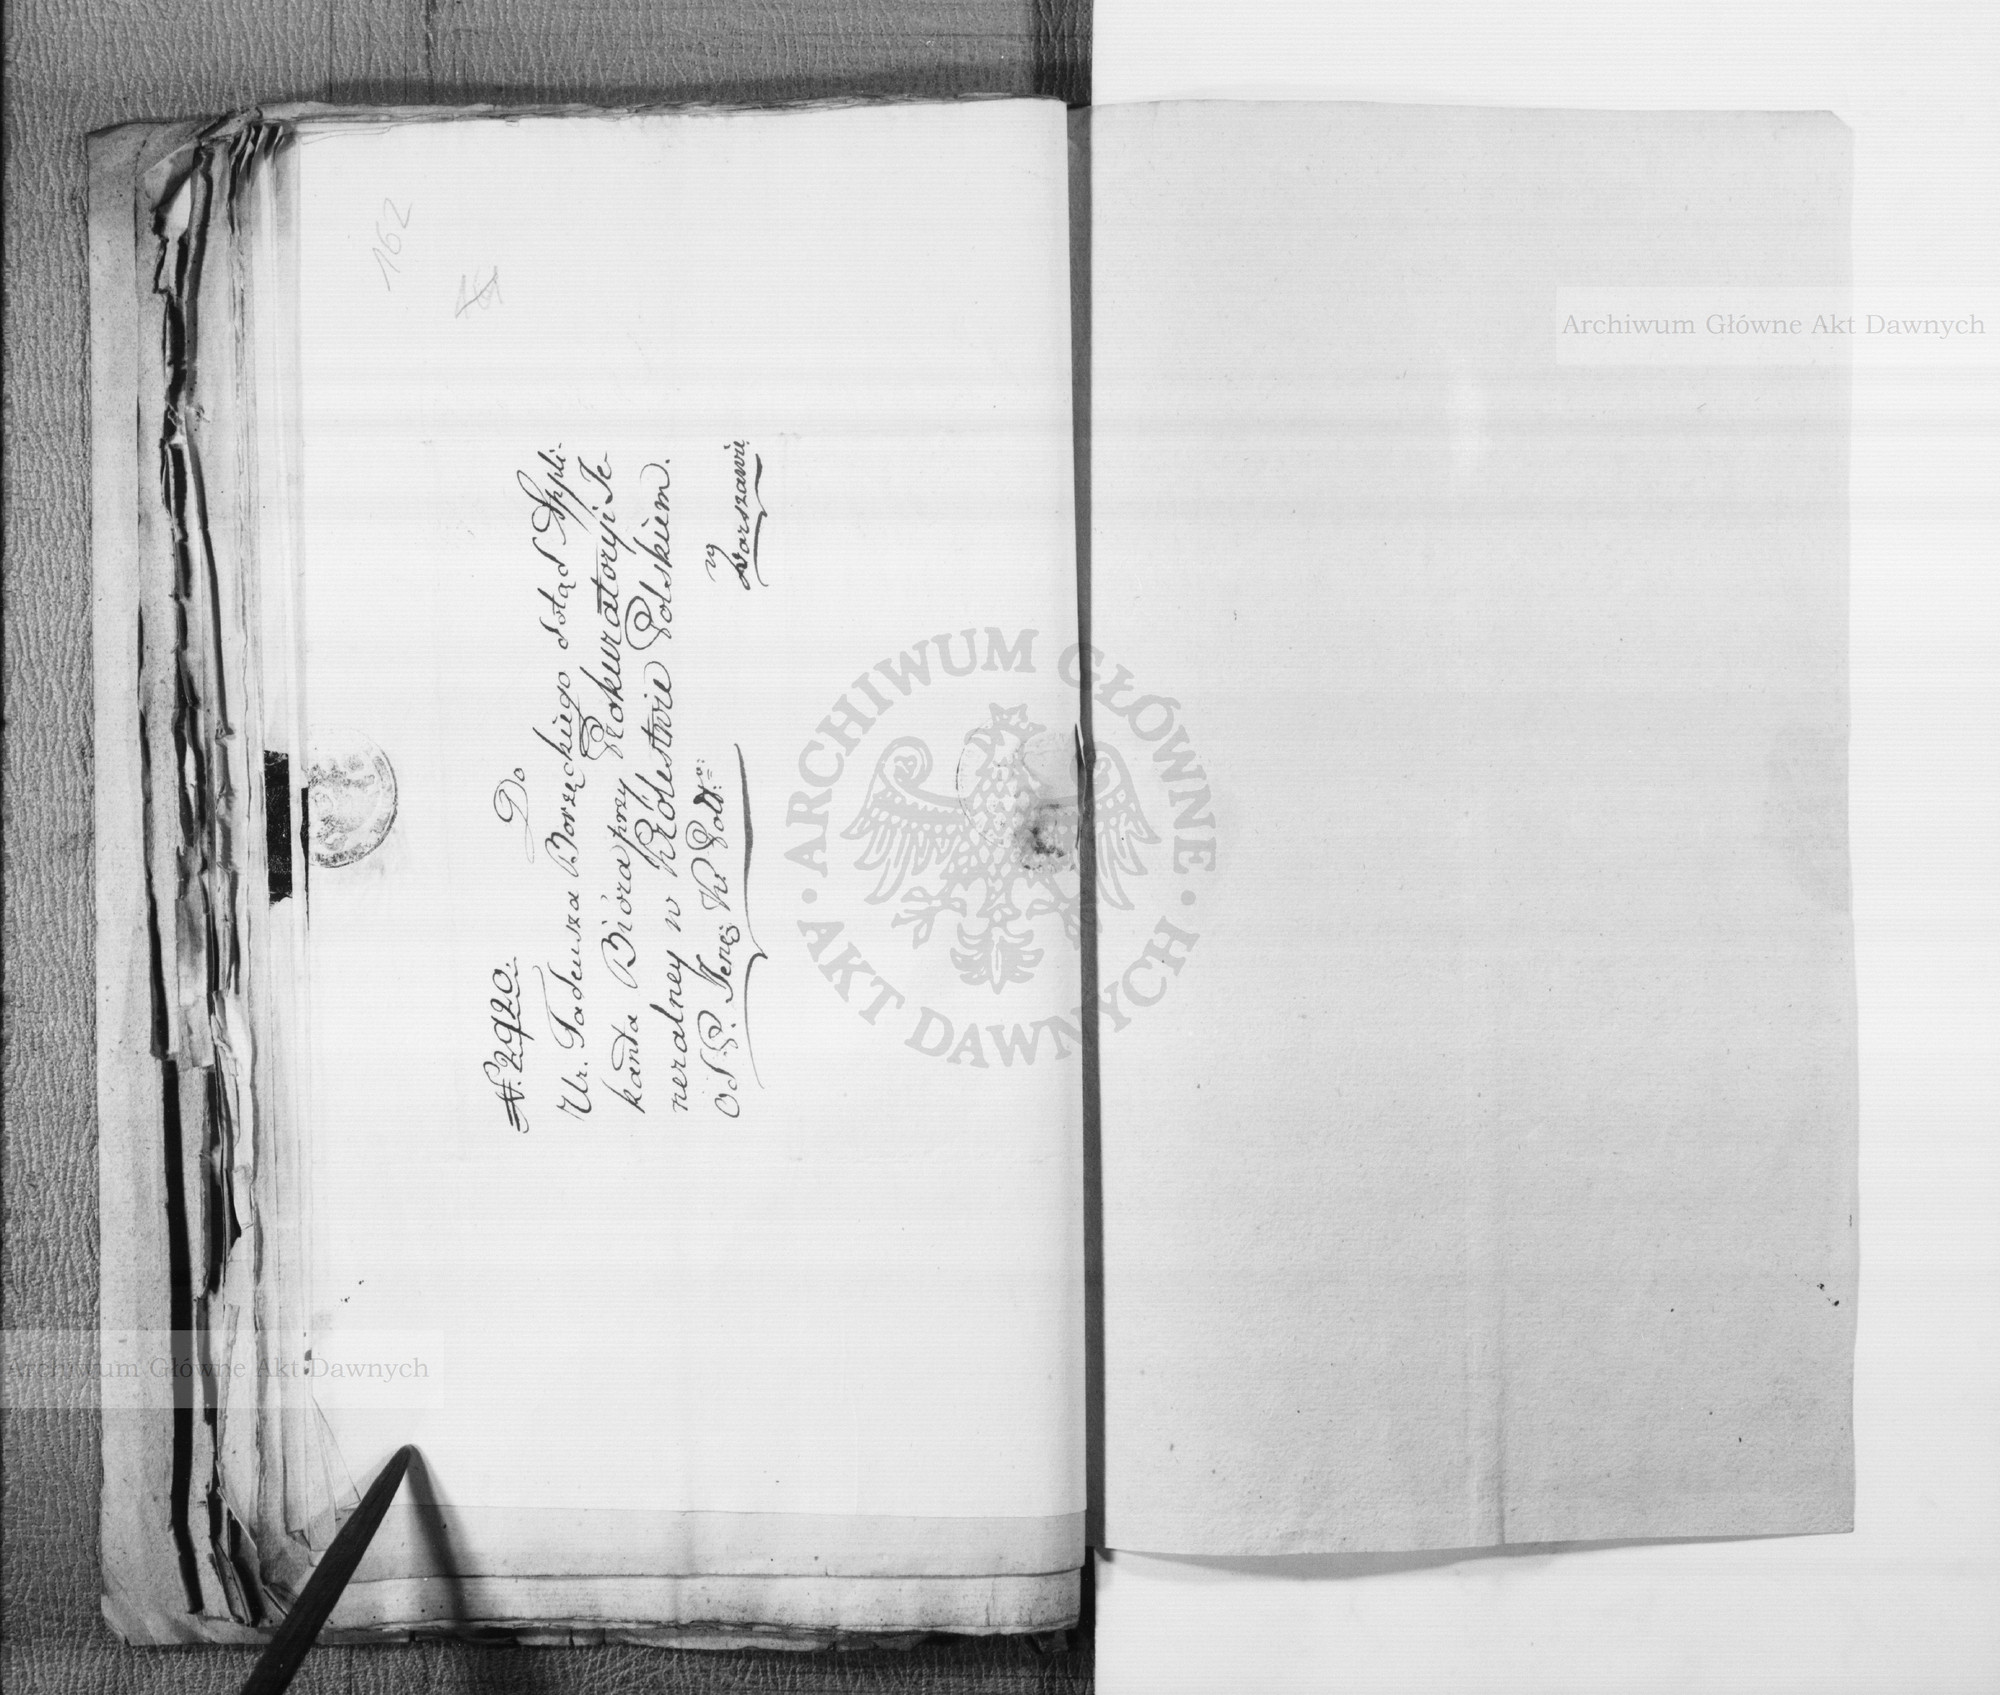 162
N. 2920.
Do
Ur. Tadeusza Borzęckiego dotąd Appli-
kanta Bióra przy Prokuratoryi Je-
neralney w Królestwie Polskiem.
Od P. Jener. Kr. Pol.
w
Warszawie
Archiwum Główne Akt Dawnych
Archiwum Główne Akt Dawnych
ARCHIWUM GŁÓWNE AKT DAWNYCH